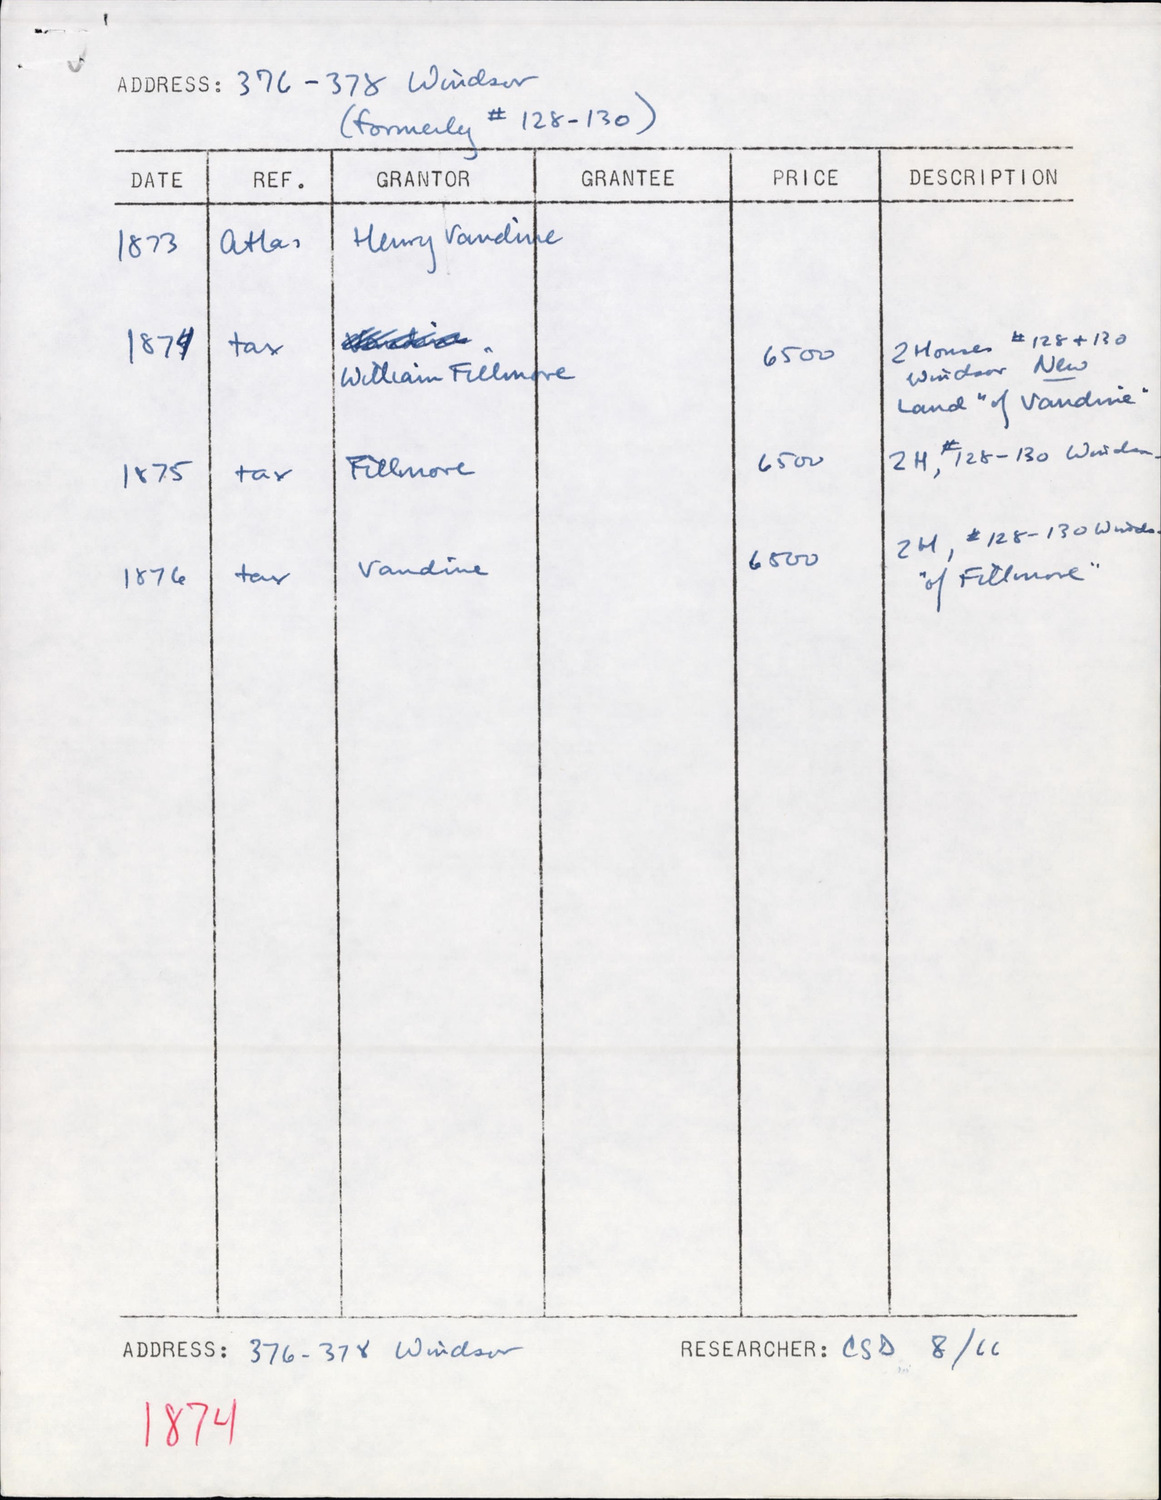 ADDRESS: 376-378 Windsor
(formerly # 128-130)
DATE REF. GRANTOR GRANTEE PRICE DESCRIPTION
1873 Atlas Henry Vandine
1874 tax William Fillmore 6500 2 Houses # 128 + 130
Windsor New
Land "of Vandine"
1875 tax Fillmore 6500 2 H, # 128-130 Windsor
1876 tax Vandine 6500 2 H, # 128-130 Winds.
"of Fillmore"
ADDRESS: 376-378 Windsor RESEARCHER: CSD 8/66
1874